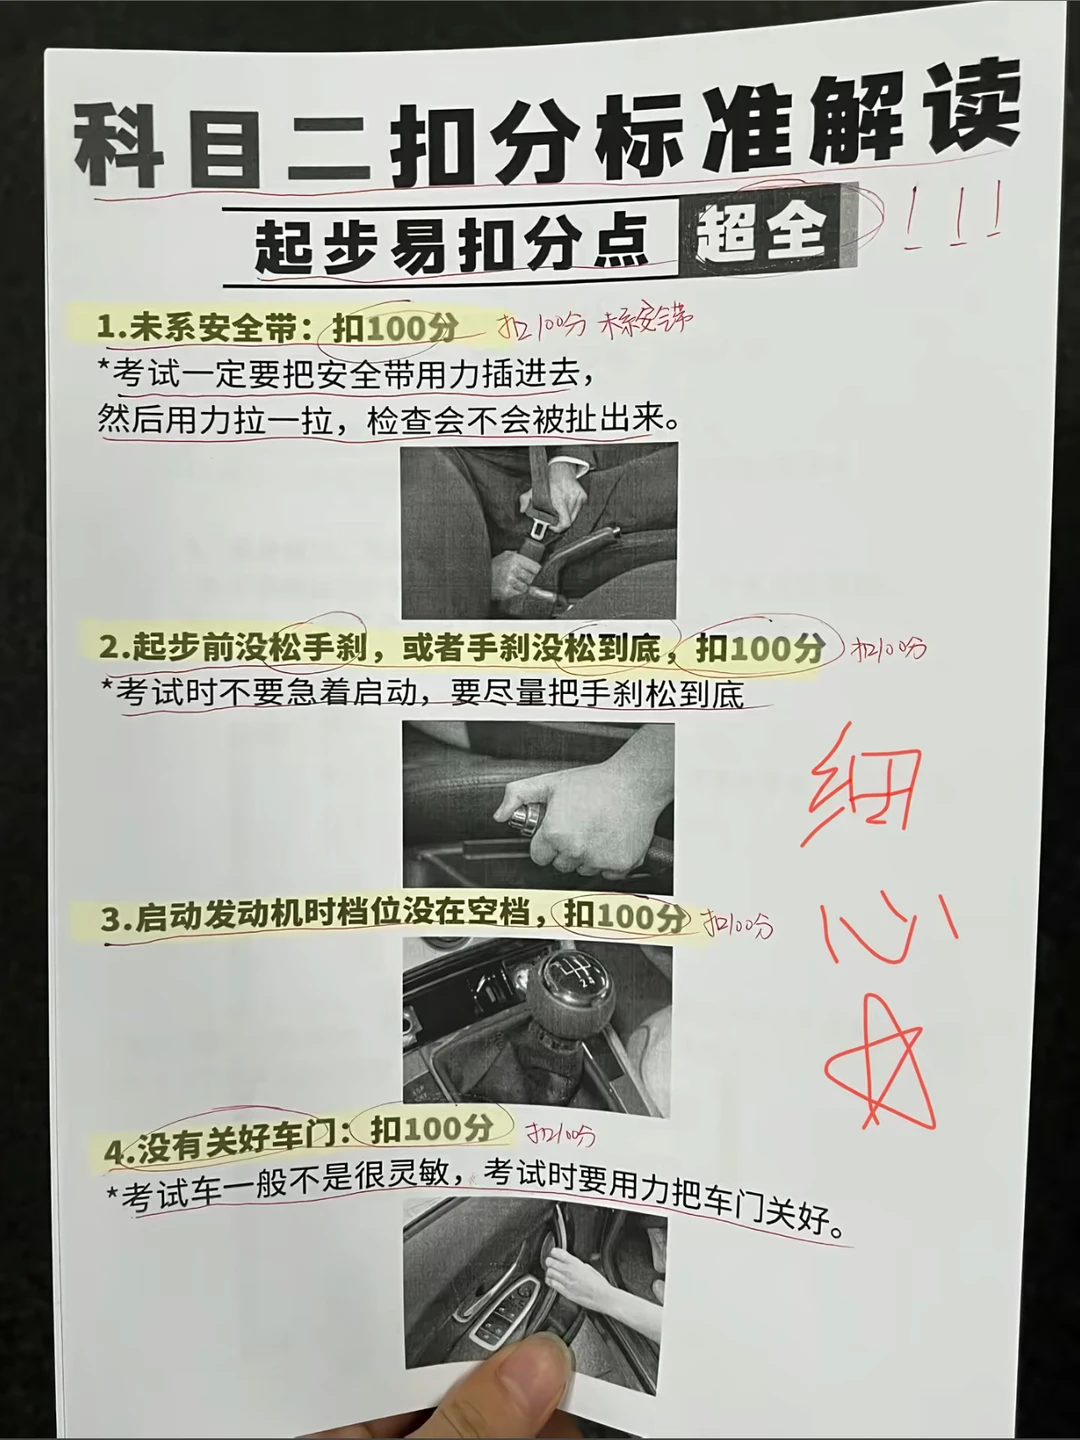 科目二扣分标准解读
起步易扣分点 超全 ！！！
1.未系安全带：扣100分 扣100分 未系安全带
*考试一定要把安全带用力插进去，
然后用力拉一拉，检查会不会被扯出来。
2.起步前没松手刹，或者手刹没松到底，扣100分 扣100分
*考试时不要急着启动，要尽量把手刹松到底
细
心
3.启动发动机时档位没在空档，扣100分 扣100分
2 4
4.没有关好车门：扣100分 扣100分
*考试车一般不是很灵敏，考试时要用力把车门关好。